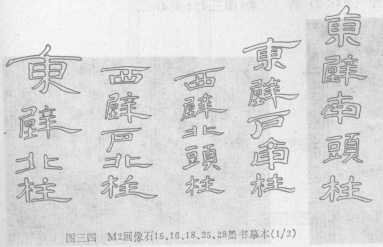 東壁北柱
西壁户北柱
西壁北頭柱
東壁户南柱
東壁南頭柱
图三四 M2画像石15、16、18、25、28墨书摹本(1/2)